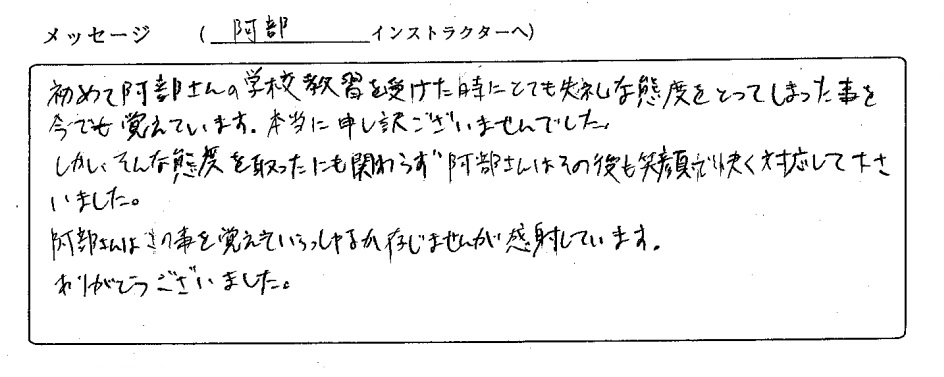 メッセージ　（ 阿部 インストラクターへ）
初めて阿部さんの学校教習を受けた時にとても失礼な態度をとってしまった事を
今でも覚えています。本当に申し訳ございませんでした。
しかし、そんな態度を取ったにも関わらず阿部さんはその後も笑顔で快く対応して下さ
いました。
阿部さんはその事を覚えていらっしゃるか存じませんが感射しています。
ありがとうございました。